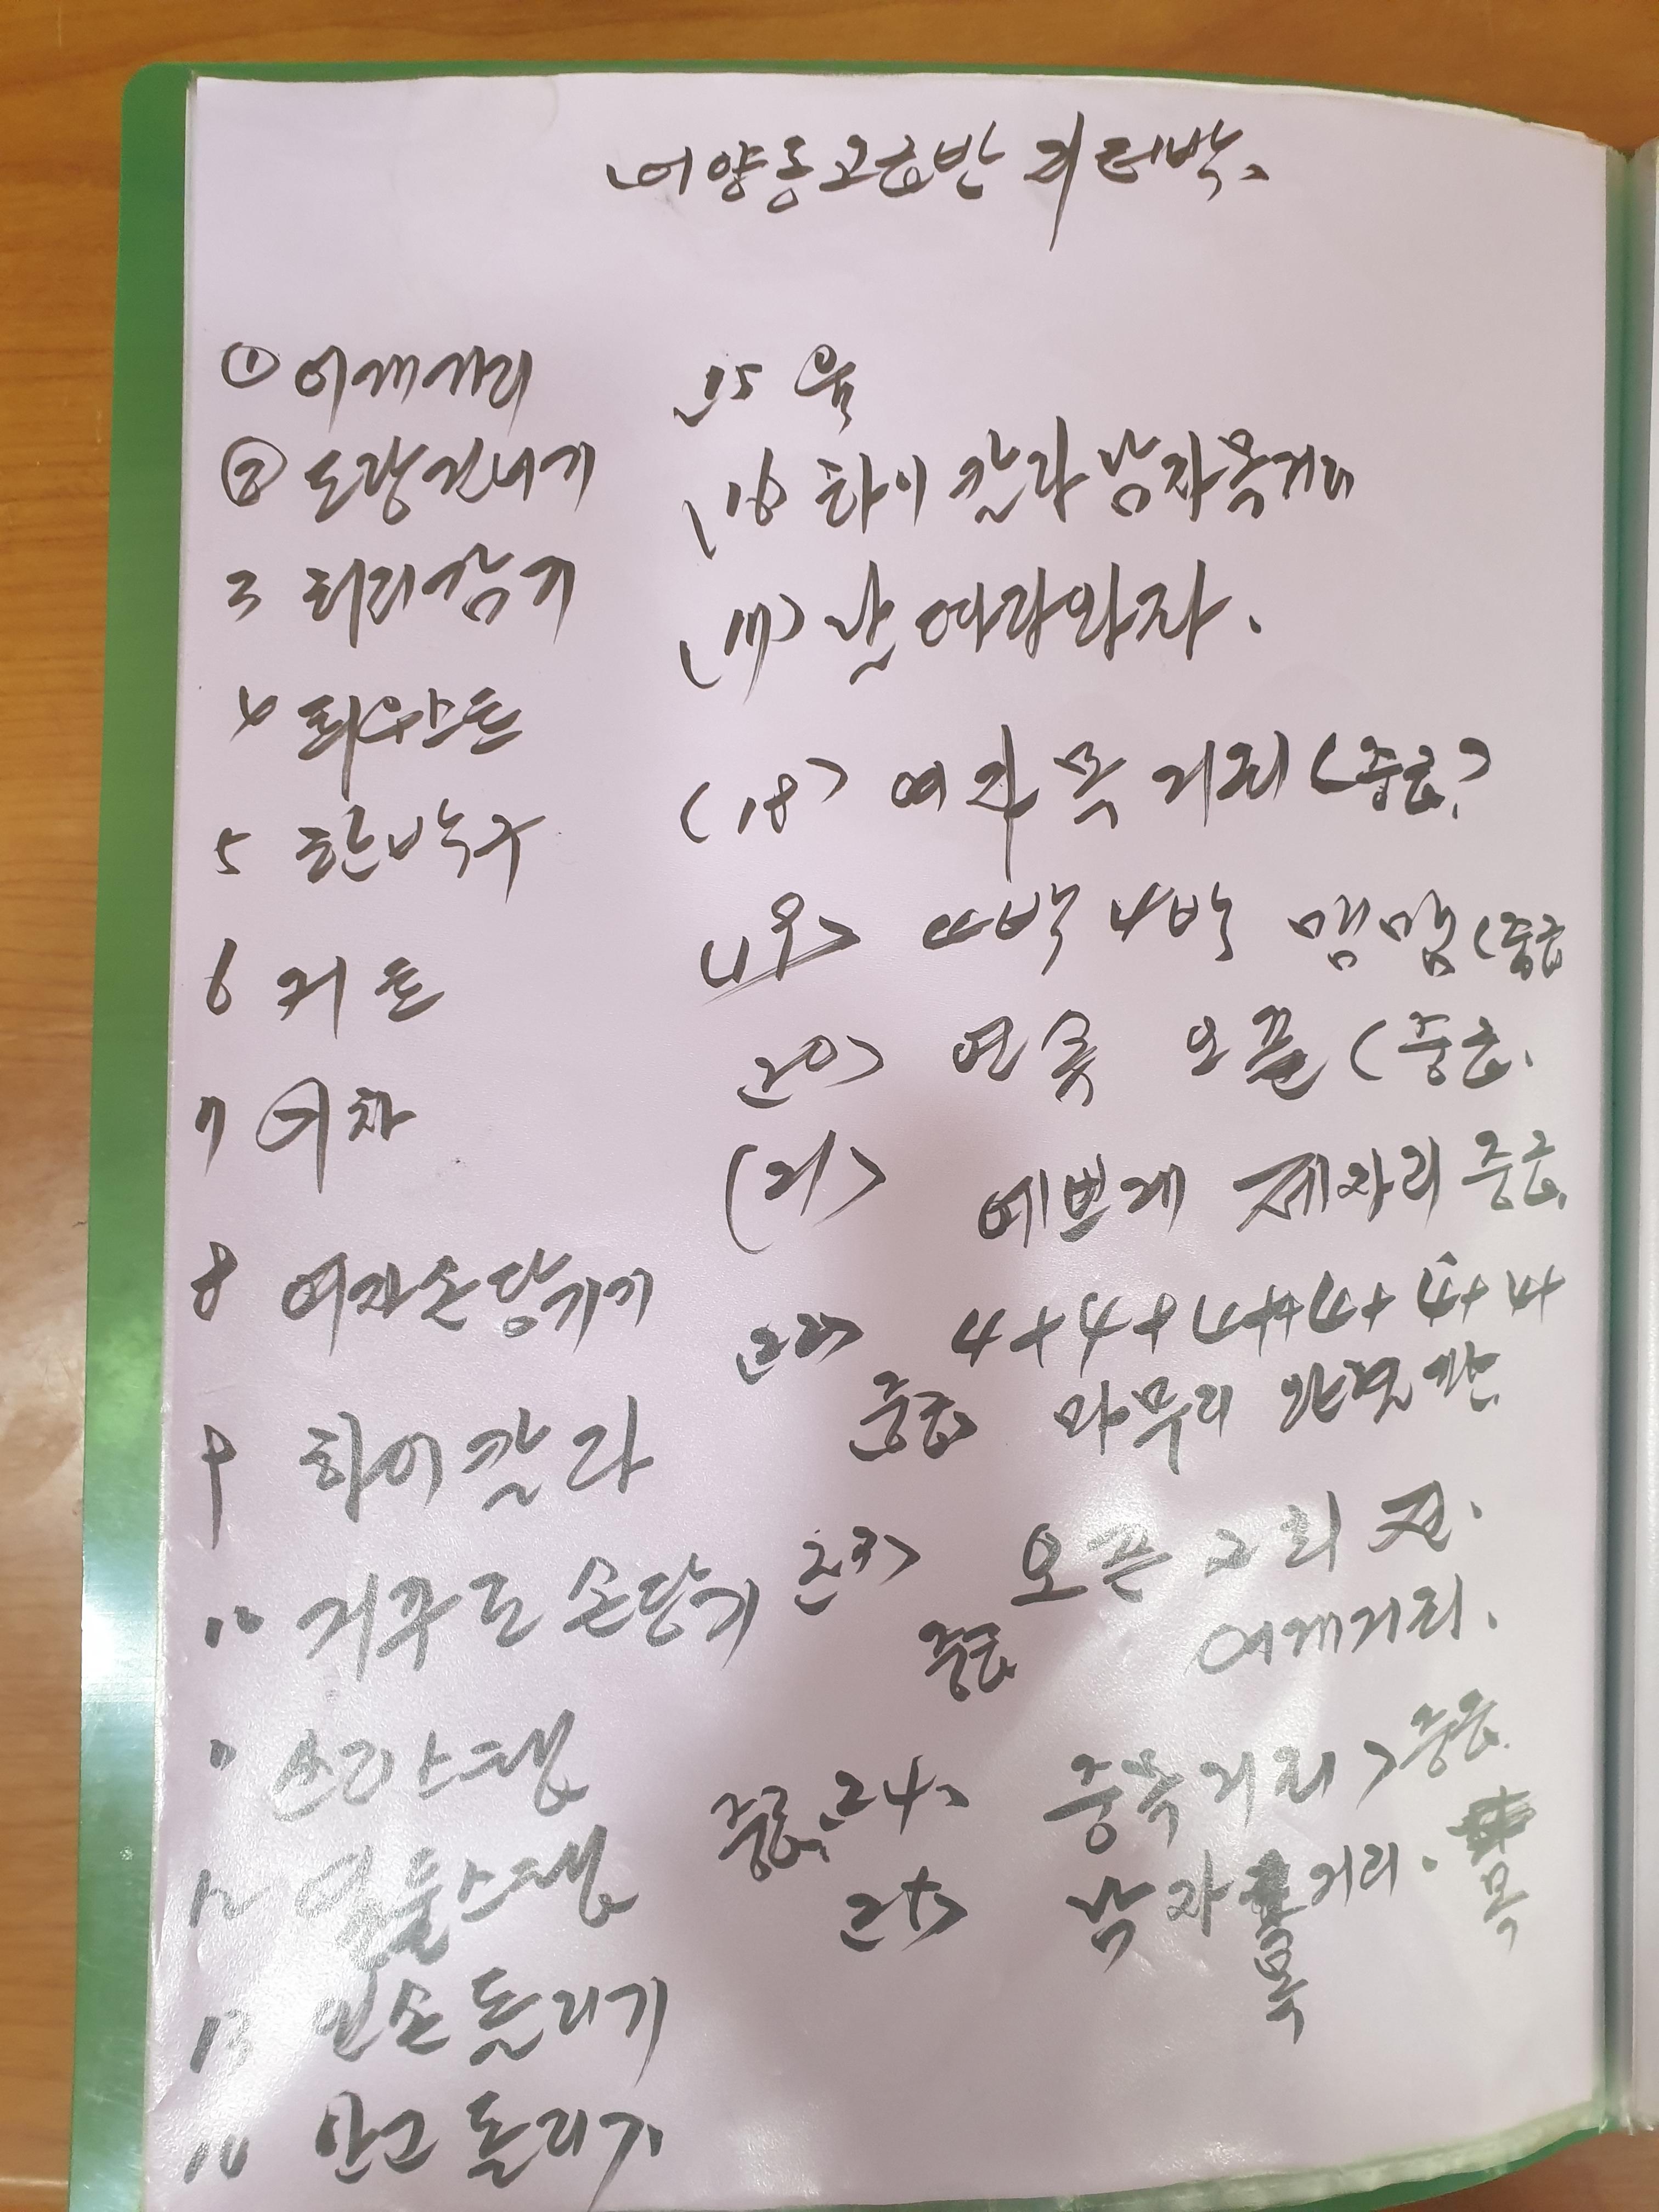 어양동고급반 리턴박.
① 어깨거리
② 도랑건너기
3 허리감기
4 트위스트
5 한바구
6 커트
7 기차
8 여자손당기기
9 하이칼라
10 거꾸로 손당기
11 쓰리스텝
12 열둘스텝
13 인손돌리기
14 안고돌리기
15 윷
(16 하이칼라남자목거리
(17) 날 여라와자.
(18) 여자목거리(중급)
(19) 4박4박 맴맴(중급
(20) 연속 오픈(중급.
(21) 예쁘게 제자리 중급.
(22) 4+4+4+4+4+4
중급 마무리
(23) 오픈
중급 어깨거리.
중급, 24) 중목거리) 중급.
25) 남자목거리. 목